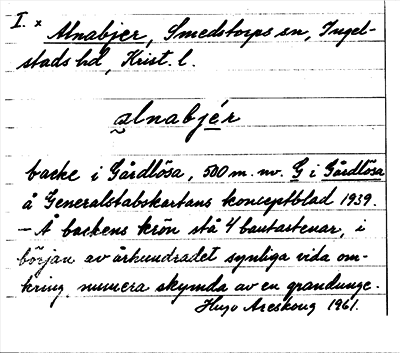 I. x Alnabjer, Smedstorps sn, Ingel-
stads hd, Krist. l.
alnabjér
backe i Gårdlösa, 500 m. nv. G i Gårdlösa
å Generalstabskartans konceptblad 1939.
– Å backens krön stå 4 bautastenar, i
början av århundradet synliga vida om-
kring, numera skymda av en grandunge.
Hugo Areskoug 1961.